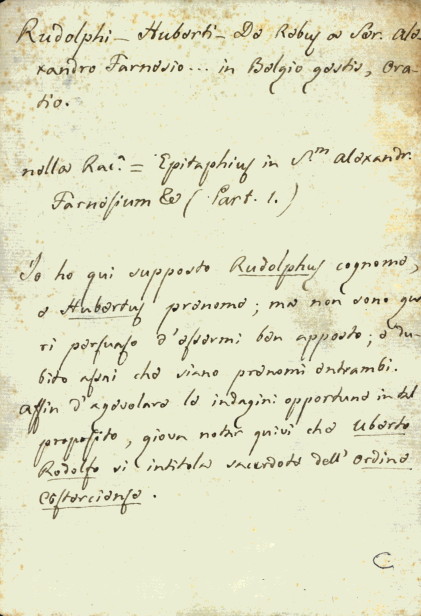 Rudolphi - Huberti - De Rebus a Ser. Ale-
xandro Farnesio... in Belgio gestis, Ora-
tio.
nella Rac.ᵃ = Epitaphius in S.ᵐ Alexandr.
Farnesium &c ( Part. 1. )
Io ho qui supposto Rudolphus cognome,
e Hubertus prenome; ma non sono gua-
ri persuaso d'essermi ben apposto; e du-
bito assai che siano prenomi entrambi.
Affin d'agevolare le indagini opportune in tal
proposito, giova notar quivi che Uberto
Rodolfo si intitola sacerdote dell' Ordine
Cisterciense.
C